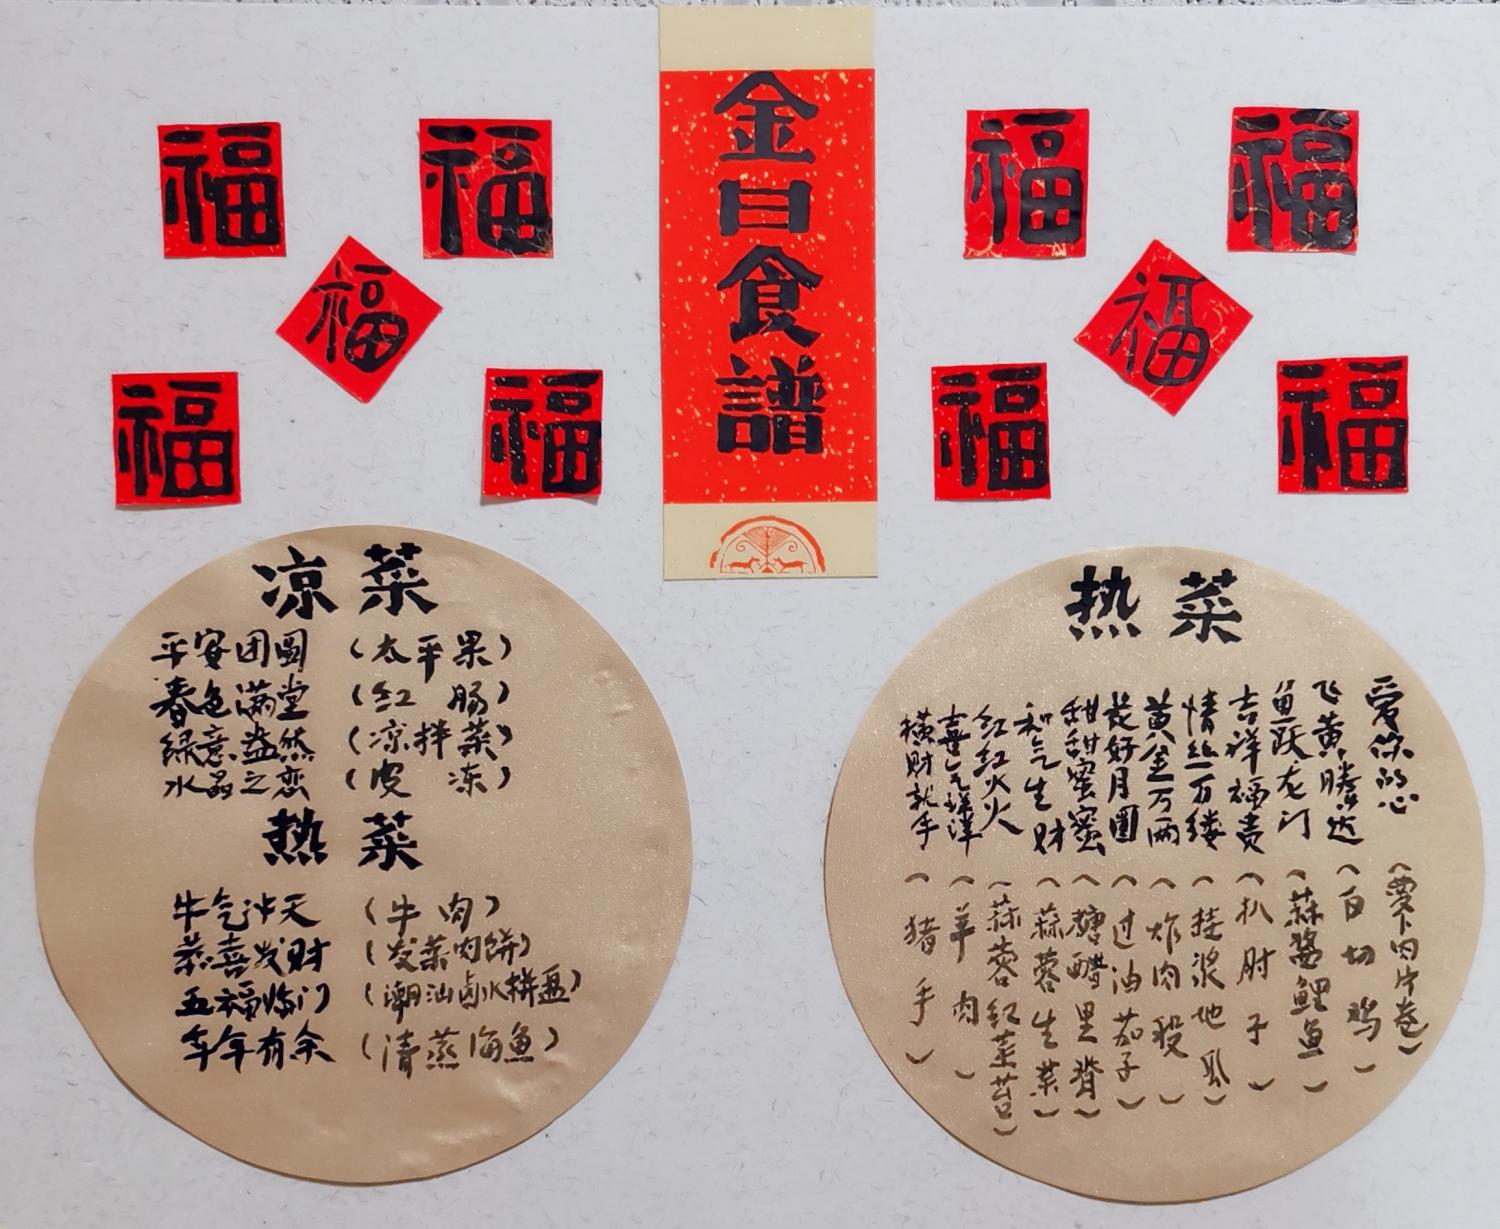 金日食譜
福
福
福
福
福
福
福
福
福
福
凉菜
平安团圆（太平果）
春色满堂（红肠）
绿意盎然（凉拌菜）
水晶之恋（皮冻）
热菜
牛气冲天（牛肉）
恭喜发财（发菜肉饼）
五福临门（潮汕卤水拼盘）
年年有余（清蒸海鱼）
热菜
爱你的心（萝卜肉片卷）
飞黄腾达（白切鸡）
鱼跃龙门（蒜酱鲤鱼）
吉祥福贵（扒肘子）
情丝万缕（挂浆地瓜）
黄金万两（炸肉段）
花好月圆（过油茄子）
甜甜蜜蜜（糖醋里脊）
和气生财（蒜蓉生菜）
红红火火（蒜蓉红菜苔）
喜气洋洋（羊肉）
横财就手（猪手）